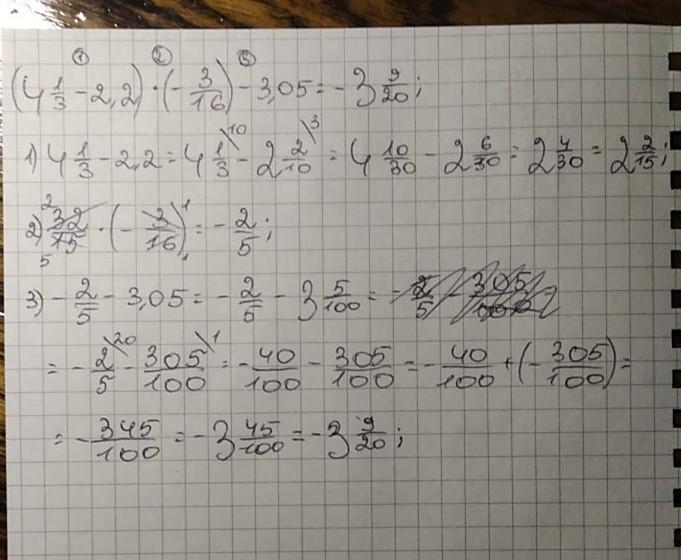 ① ② ③
(4 1/3 - 2,2) · (- 3/16) - 3,05 = - 3 9/20;
1) 4 1/3 - 2,2 = 4 1/3\10 - 2 2/10\3 = 4 10/30 - 2 6/30 = 2 4/30 = 2 2/15;
2) 32/15 · (- 3/16) = - 2/5;
3) - 2/5 - 3,05 = - 2/5 - 3 5/100 =
= - 2/5\20 - 305/100\1 = - 40/100 - 305/100 = - 40/100 + (- 305/100) =
= - 345/100 = - 3 45/100 = - 3 9/20;